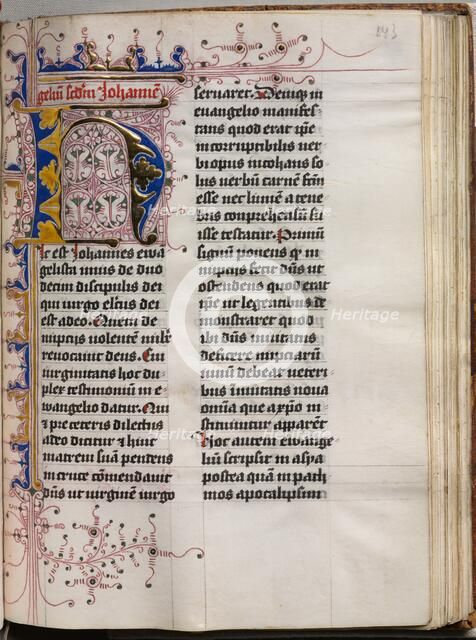 143
geliū scdm Johannē
Hic est Johannes ewa
gelista unus de duo
decim discipulis dei
qui virgo elctus dei
est a deo. Quem de
nupciis volentē nub̄e
revocavit deus. Cui
virginitatis hoc du
plex testimoniū in e
wangelio datur. Qui
et pre ceteris dilectus
a deo dicitur et huic
matrem suā pendens
in cruce cōmendavit
dūs ut virginē virgo
servaret. Deniq̄ in
evangelio manifes
tans quod erat ip̄e
incorruptibilis ver
bi opus inchoans so
lus verbū carnē fcm̄
esse nec lumē a tene
bris comprehensū fu
isse testatur. Primū
signū ponens qd̄ in
nupciis fecit dn̄s ut
ostendens quod erat
ip̄e ut legentibus de
monstraret quod
ubi dn̄s invitatus
deficere nupciarū
vinū debeat et veteri
bus īmutatis nova
omīa que a xp̄o in
stituuntur appareāt
Hoc autem evange
liū scripsit in asya
postea quā in path
mos apocalipsim